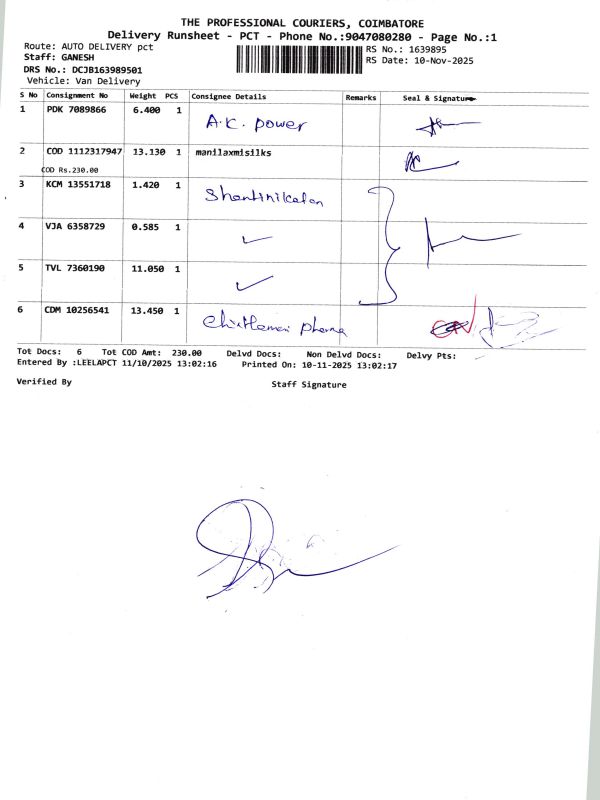 THE PROFESSIONAL COURIERS, COIMBATORE
Delivery Runsheet - PCT - Phone No.:9047080280 - Page No.:1
Route: AUTO DELIVERY pct
RS No.: 1639895
Staff: GANESH
RS Date: 10-Nov-2025
DRS No.: DCJB163989501
Vehicle: Van Delivery
S No Consignment No Weight PCS Consignee Details Remarks Seal & Signature
1 PDK 7089866 6.400 1 A.K. power
2 COD 1112317947 13.130 1 manilaxmisilks
COD Rs.230.00
3 KCM 13551718 1.420 1 Shantiniketan
4 VJA 6358729 0.585 1 ✓
5 TVL 7360190 11.050 1 ✓
6 CDM 10256541 13.450 1 pharma
Tot Docs: 6 Tot COD Amt: 230.00 Delvd Docs: Non Delvd Docs: Delvy Pts:
Entered By :LEELAPCT 11/10/2025 13:02:16 Printed On: 10-11-2025 13:02:17
Verified By Staff Signature